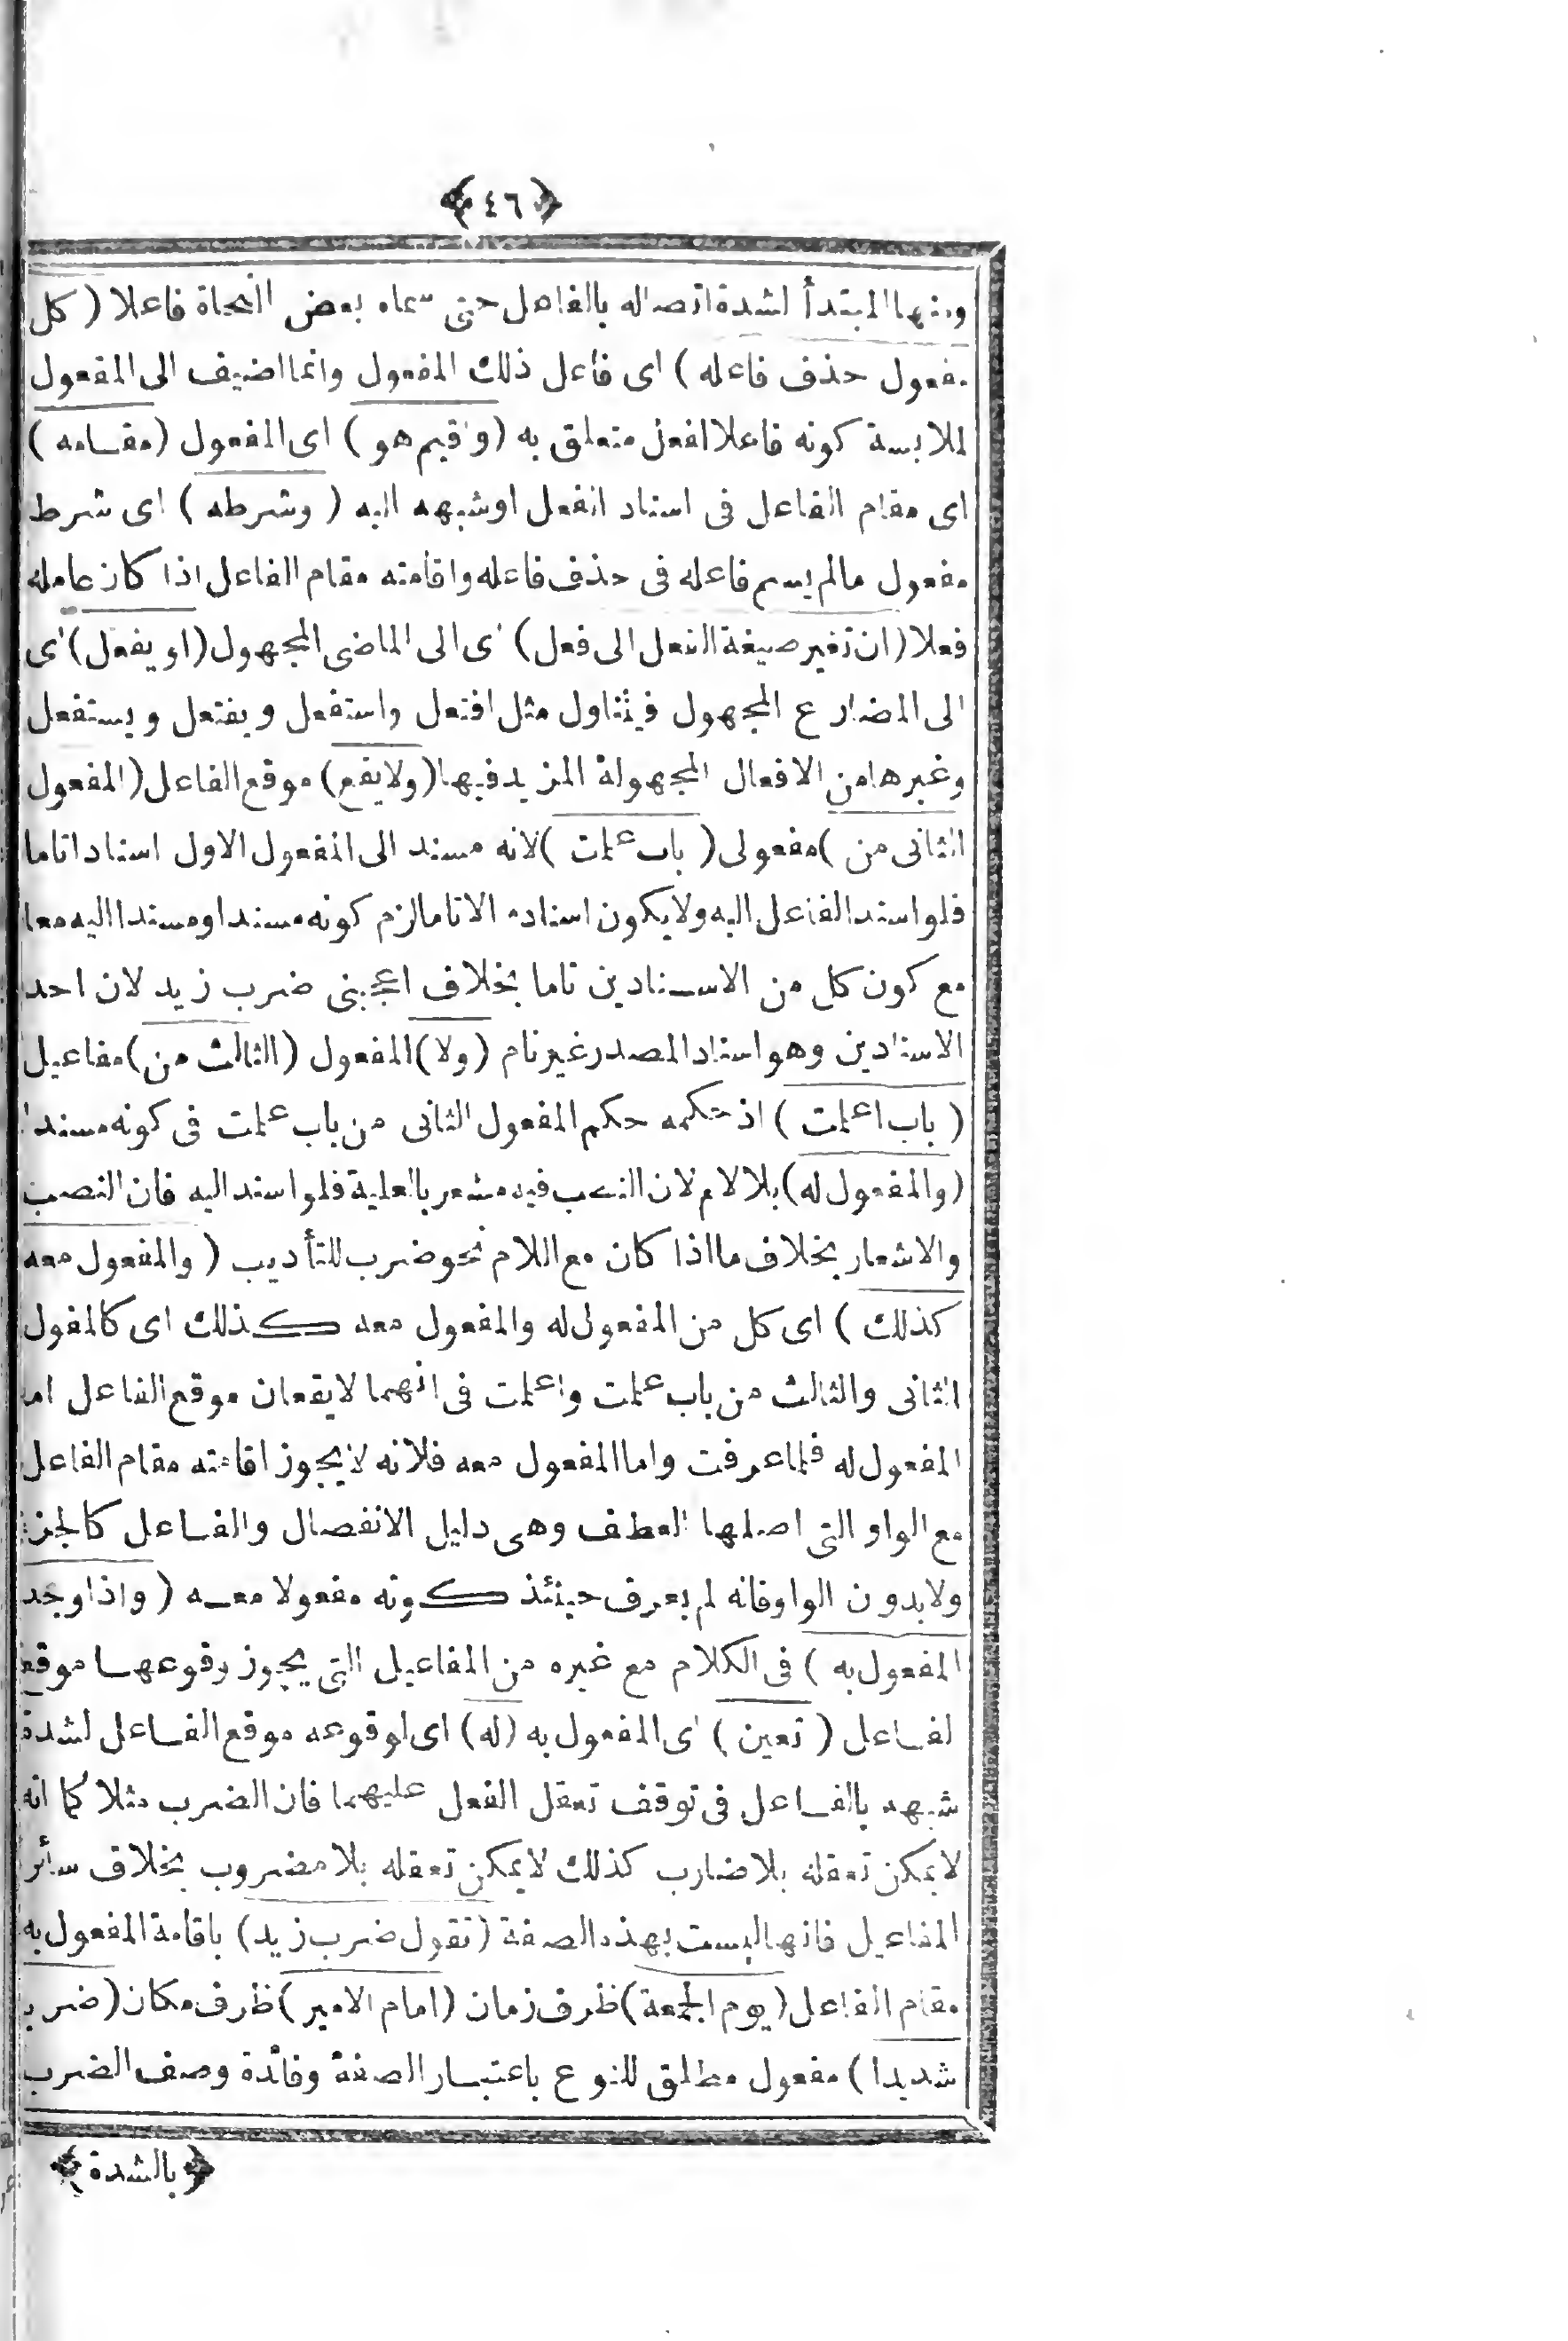 ﴿ ٤٦ ﴾
ومنها المبتدأ لشدة اتصاله بالفاعل حتى سماه بعض النحاة فاعلا ( كل
مفعول حذف فاعله ) اى فاعل ذلك المفعول وانما اضيف الى المفعول
لملابسة كونه فاعلا لفعل متعلق به ( واقيم هو ) اى المفعول ( مقامه )
اى مقام الفاعل فى اسناد الفعل اوشبهه اليه ( وشرطه ) اى شرط
مفعول مالم يسم فاعله فى حذف فاعله واقامته مقام الفاعل اذا كان عامله
فعلا ( ان تغير صيغة الفعل الى فعل ) اى الى الماضى المجهول ( او يفعل ) اى
الى المضارع المجهول فيتناول مثل افتعل واستفعل ويفتعل ويستفعل
وغيرها من الافعال المجهولة المزيد فيها ( ولا يقع ) موقع الفاعل ( المفعول
الثانى من ) مفعولى ( باب علمت ) لانه مسند الى المفعول الاول اسنادا تاما
فلو اسند الفعل اليه ولا يكون اسناده الا تاما لزم كونه مسندا ومسندا اليه معا
مع كون كل من الاسنادين تاما بخلاف اعجبنى ضرب زيد لان احد
الاسنادين وهو اسناد المصدر غير تام ( ولا ) المفعول ( الثالث من ) مفاعيل
( باب اعلمت ) اذ حكمه حكم المفعول الثانى من باب علمت فى كونه مسندا
( والمفعول له ) بلا لام لان النصب فيه مشعر بالعلية فلو اسند اليه فات النصب
والاشعار بخلاف ما اذا كان مع اللام نحو ضرب للتأديب ( والمفعول معه
كذلك ) اى كل من المفعول له والمفعول معه كذلك اى كالمفول
الثانى والثالث من باب علمت واعلمت فى انهما لا يقعان موقع الفاعل اما
المفعول له فلما عرفت واما المفعول معه فلانه لا يجوز اقامته مقام الفاعل
مع الواو التى اصلها العطف وهى دليل الانفصال والفاعل كالجزء
ولا بدون الواو فانه لم يعرف حينئذ كونه مفعولا معه ( واذا وجد
المفعول به ) فى الكلام مع غيره من المفاعيل التى يجوز وقوعها موقع
لفاعل ( تعين ) اى المفعول به ( له ) اى لوقوعه موقع الفاعل لشدة
شبهه بالفاعل فى توقف تعقل الفعل عليهما فان الضرب مثلا كما انه
لا يمكن تعقله بلا ضارب كذلك لا يمكن تعقله بلا مضروب بخلاف سائر
المفاعيل فانها ليست بهذه الصفة ( تقول ضرب زيد ) باقامة المفعول به
مقام الفاعل ( يوم الجمعة ) ظرف زمان ( امام الامير ) ظرف مكان ( ضربا
شديدا ) مفعول مطلق للنوع باعتبار الصفة وفائدة وصف الضرب
﴿ بالشدة ﴾